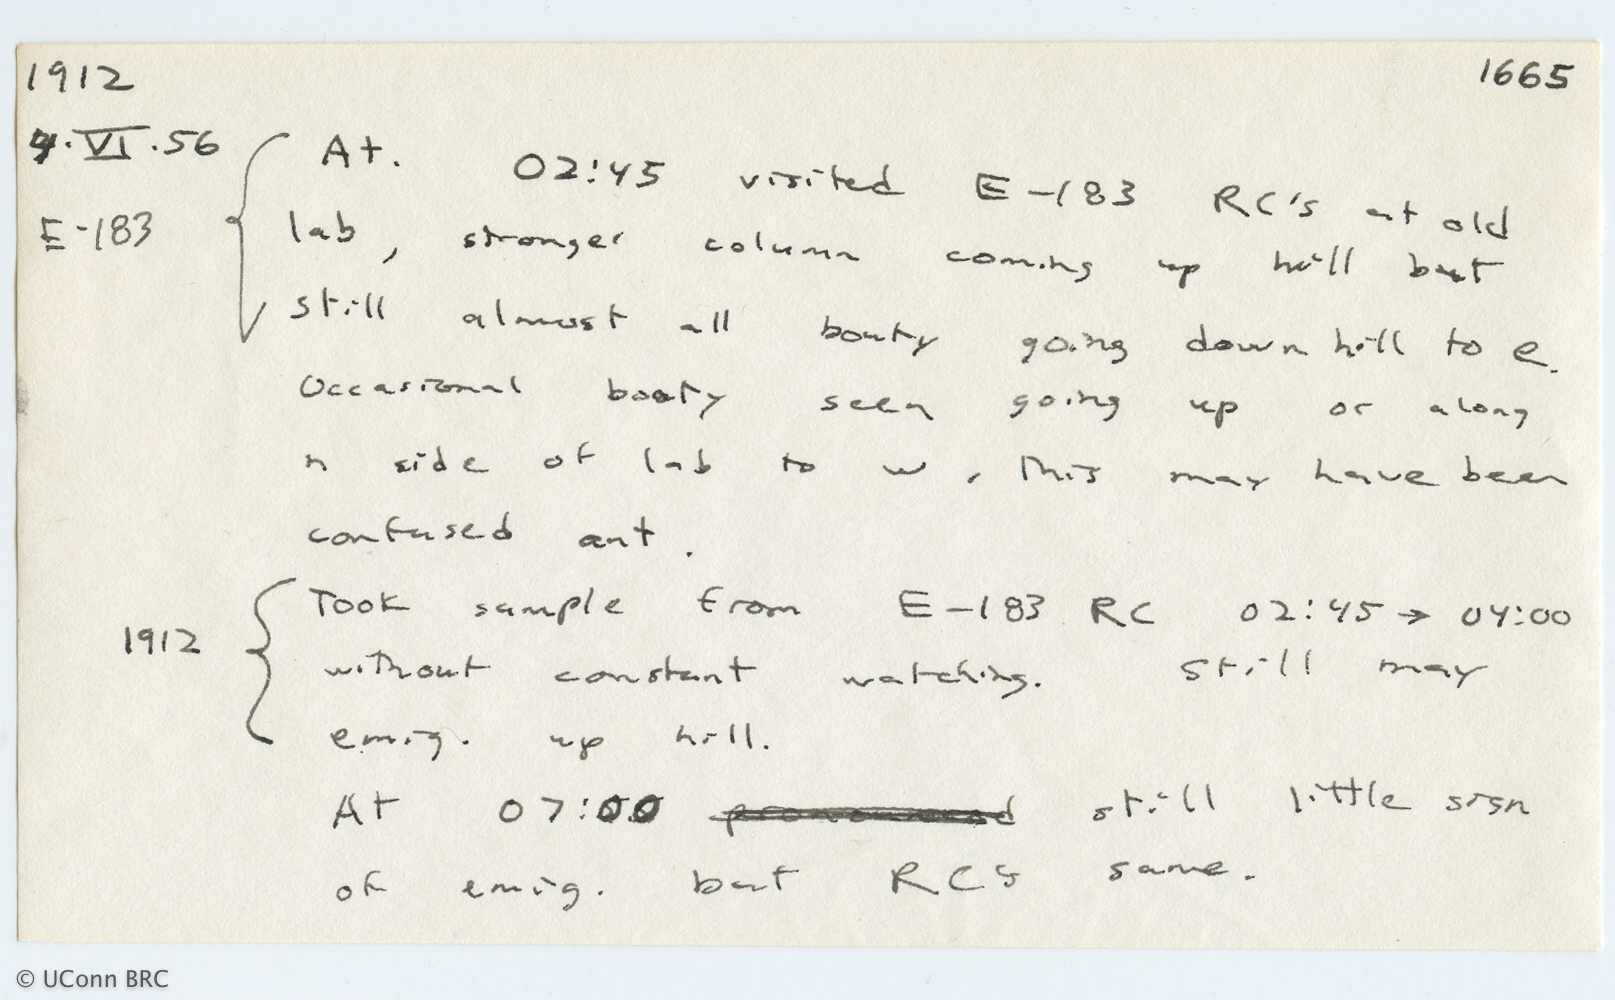 1912 1665
4.VI.56 At. 02:45 visited E-183 RC's at old
E-183 lab, stronger column coming up hill but
still almost all booty going down hill to e.
Occasional booty seen going up or along
n side of lab to w, This may have been
confused ant.
Took sample from E-183 RC 02:45 → 04:00
1912 without constant watching. Still may
emig. up hill.
At 07:00 pronounced still little sign
of emig. but RCs same.
© UConn BRC